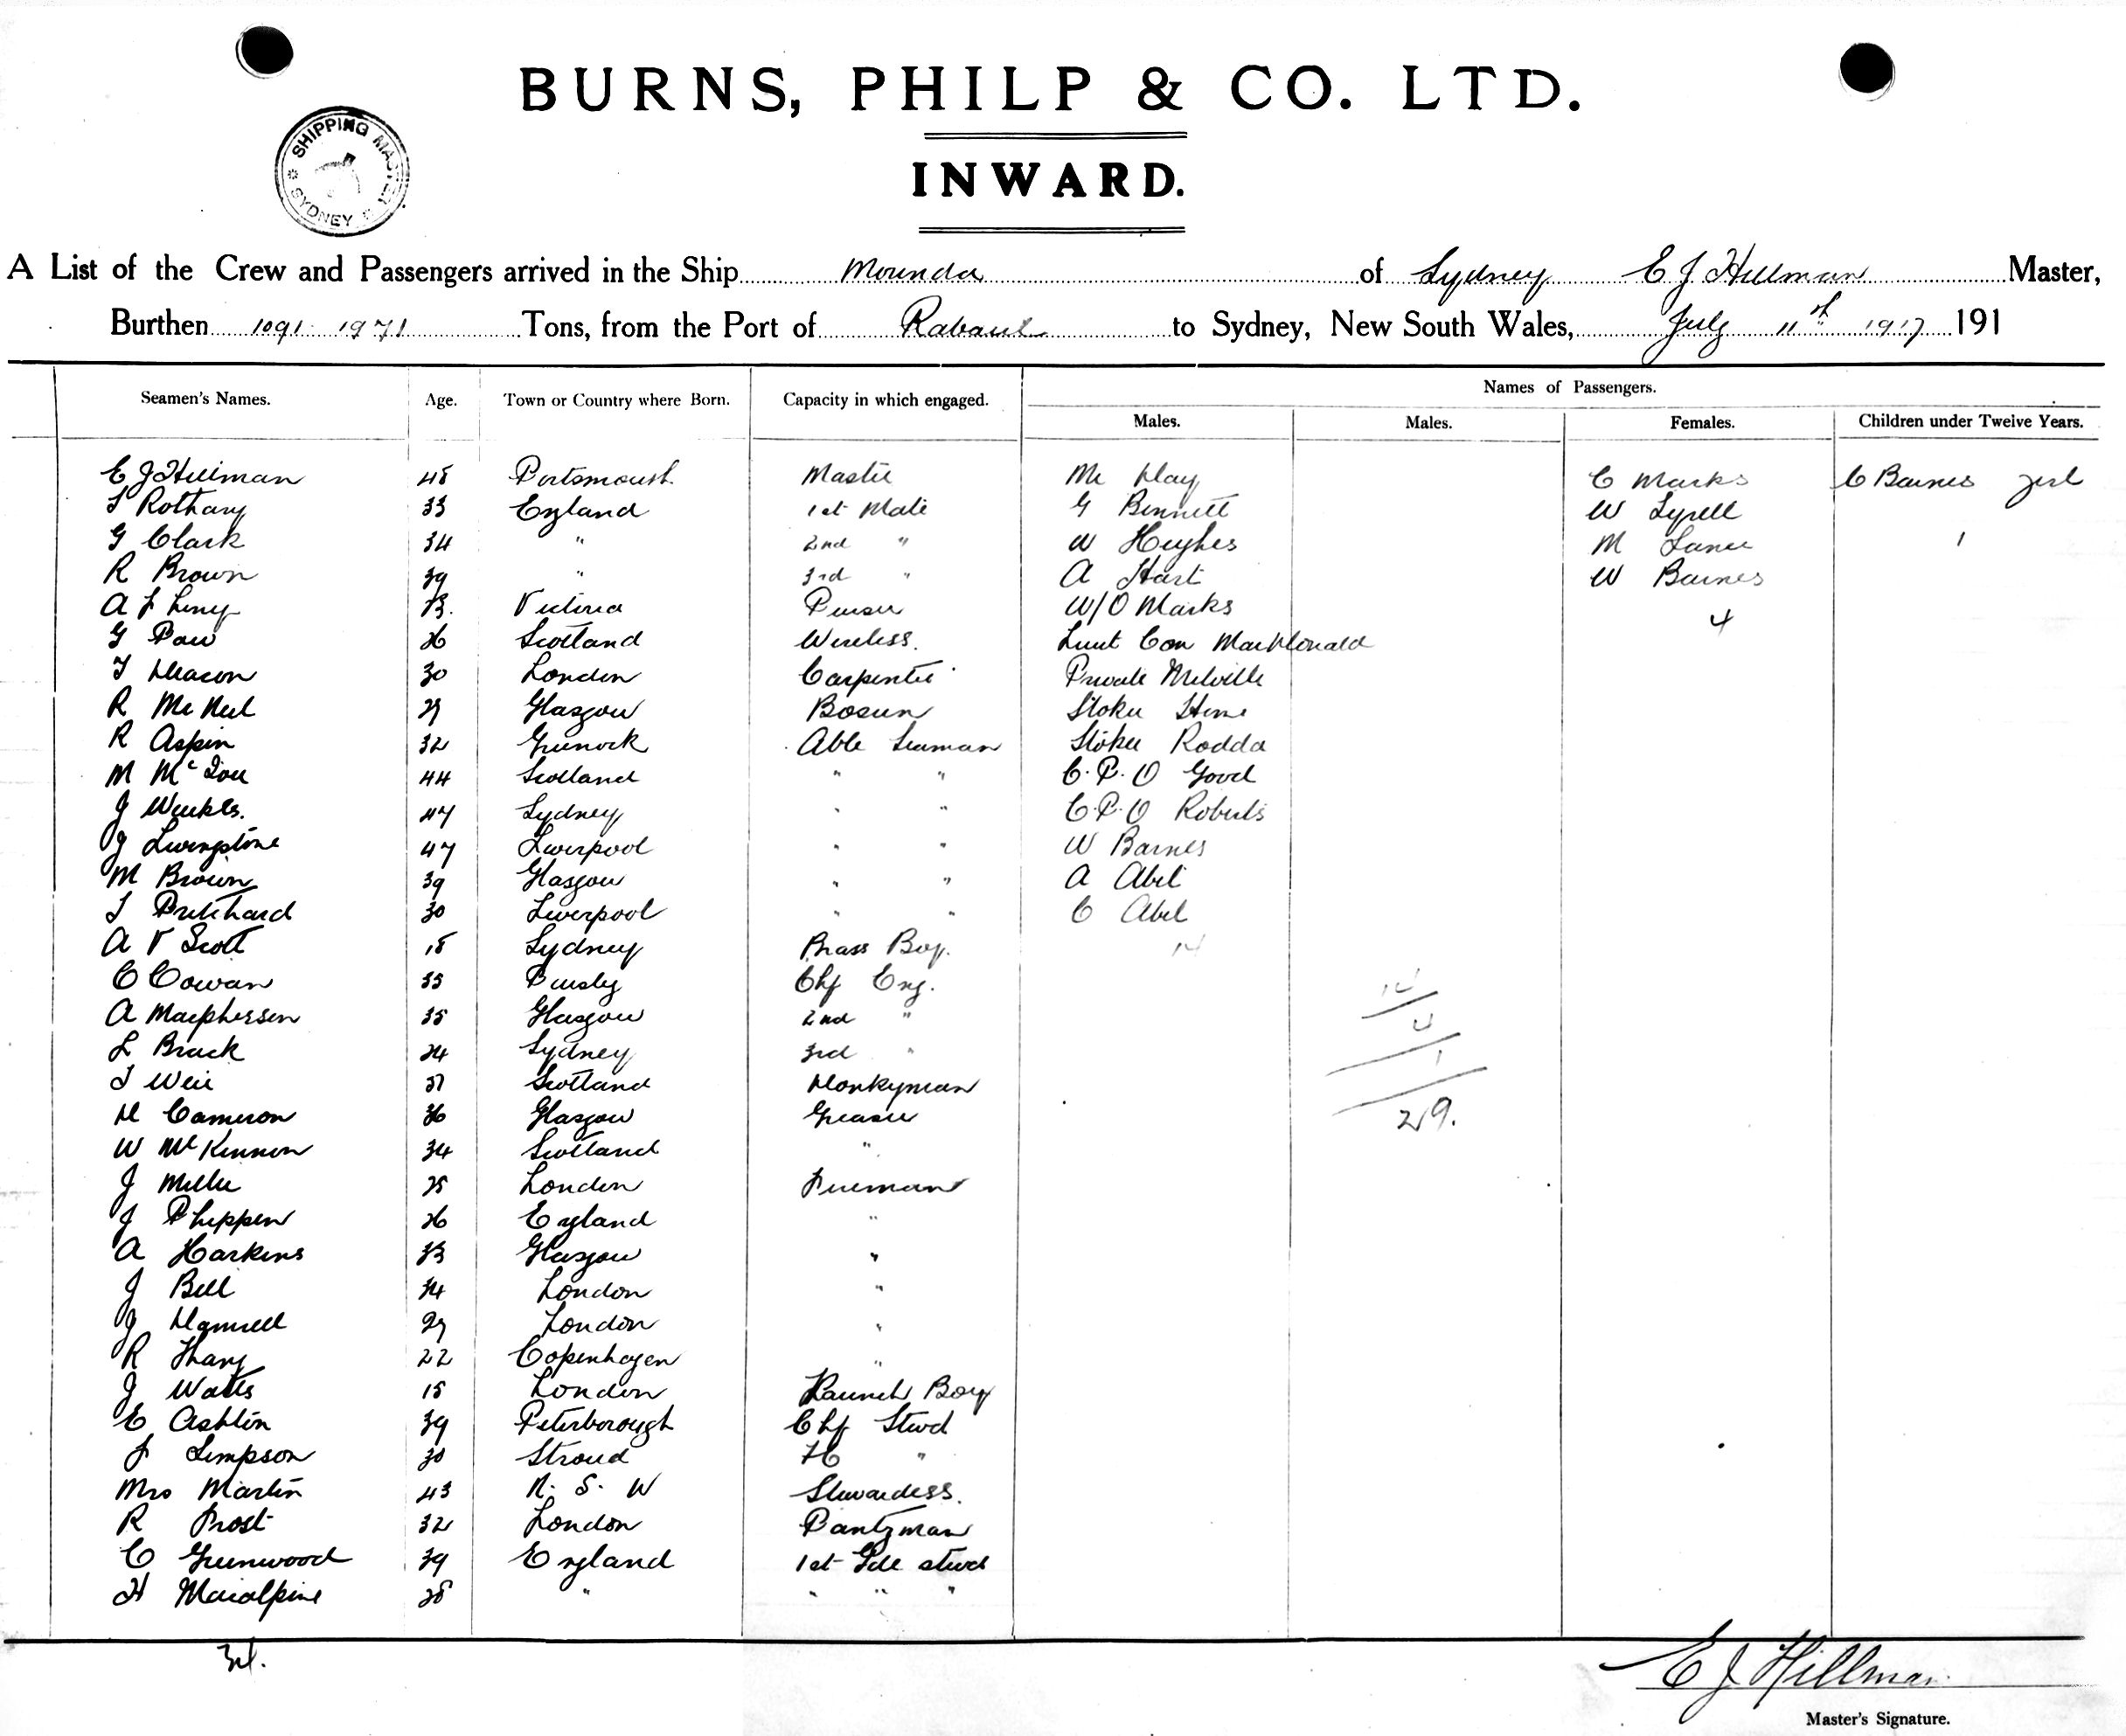 BURNS, PHILP & CO. LTD.
INWARD.
SHIPPING MASTER SYDNEY
A List of the Crew and Passengers arrived in the Ship Morinda of Sydney E J Hillman Master,
Burthen 1091 1971 Tons, from the Port of Rabaul to Sydney, New South Wales, July 11th 1917 191
Names of Passengers.
Seamen's Names. Age. Town or Country where Born. Capacity in which engaged. Males. Males. Females. Children under Twelve Years.
E J Hillman 48 Portsmouth. Master Mr Day C Marks C Barnes girl
Rothary 33 England 1st Mate G Bennett W Tyrell
G Clark 34 " 2nd " W Hughes M Lance 1
R Brown 39 " 3rd " A Hart W Barnes
A 33. Victoria Purser W/O Marks 4
G 26 Scotland Wireless. Lieut Com MacDonald
T Deacon 30 London Carpenter Private Melville
R McNeil 29 Glasgow Bosun Stoker
R Aspin 32 Greenock Able Seaman Stoker Rodda
M 44 Scotland " " C.P.O Good
J 47 Sydney " " C.P.O Roberts
J Livingstone 47 Liverpool " " W Barnes
M Brown 39 Glasgow " " A Abel
T Pritchard 30 Liverpool " " C Abel
A V Scott 18 Sydney Brass Boy. 14
C Cowan 35 Chf Eng. 14
A Macpherson 35 Glasgow 2nd " 4
L Brack 24 Sydney 3rd " 1
T Weir 37 Scotland Donkyman
D Cameron 36 Glasgow Greaser 29.
W McKinnon 34 Scotland "
J Miller 25 London Fireman
J Phippen 26 England "
A Harkins 33 Glasgow "
J Bell 34 London "
J 29 London "
R 22 Copenhagen "
J Watts 18 London Launch Boy
E Ashton 39 Peterborough Chf Stwd
F Simpson 30 Stroud "
Mrs Martin 43 N. S. W Stewardess.
R Frost 32 London Pantryman
C Greenwood 39 England 1st Sde stwd
H Macalpine 28 " " " "
34.
E J Hillman
Master's Signature.